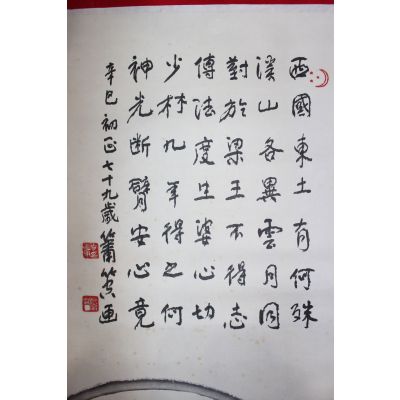 西國東土有何殊
溪山各異雲月同
對於梁王不得志
傳法度生婆心切
少林九年得之何
神光断臂安心竟
辛巳初正七十九歲簫箕画